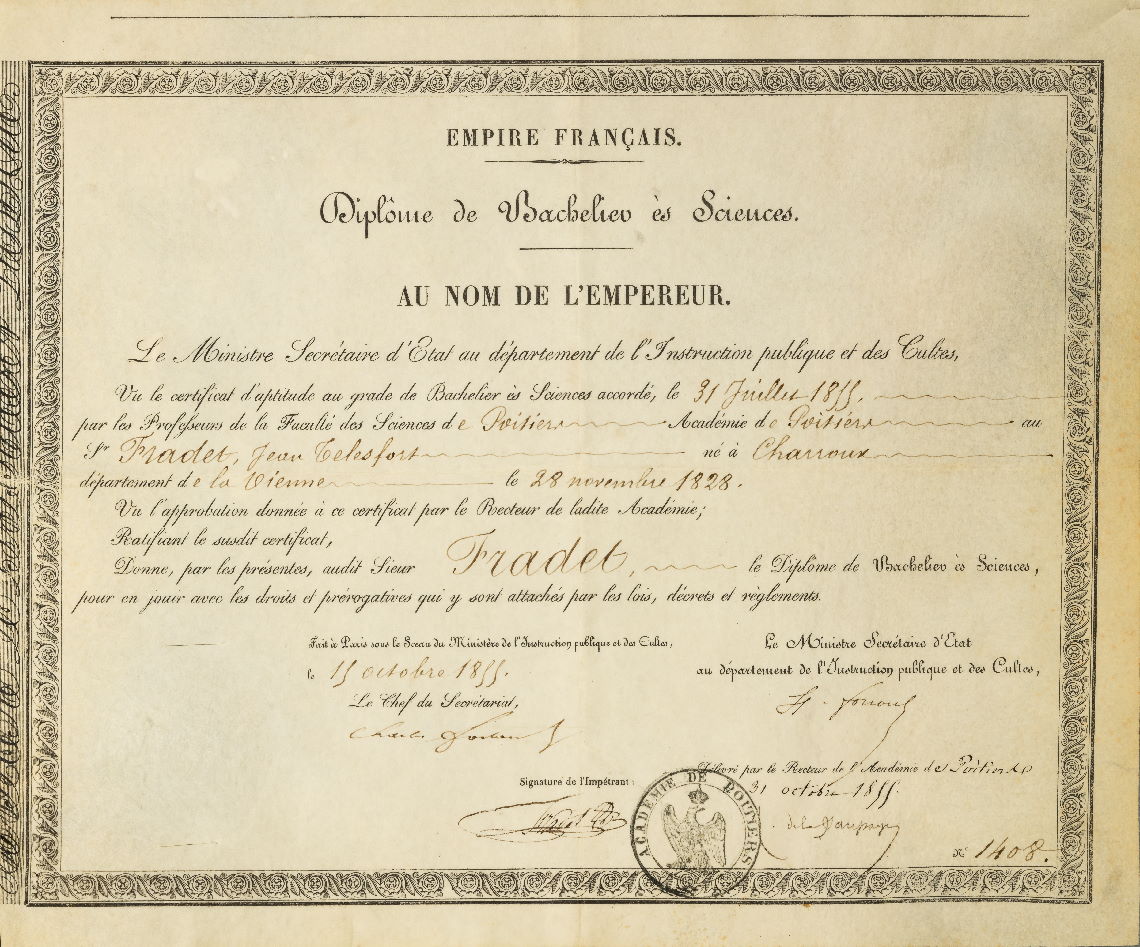 EMPIRE FRANÇAIS.
Diplôme de Bachelier ès Sciences.
AU NOM DE L'EMPEREUR.
Le Ministre Secrétaire d'Etat au département de l'Instruction publique et des Cultes,
Vu le certificat d'aptitude au grade de Bachelier ès Sciences accordé, le 31 Juillet 1855,
par les Professeurs de la Faculté des Sciences de Poitiers Académie de Poitiers au
Sr Fradet, Jean Telesfort né à Charroux
département de la Vienne le 28 novembre 1828.
Vu l'approbation donnée à ce certificat par le Recteur de ladite Académie;
Ratifiant le susdit certificat,
Donne, par les présentes, audit Sieur Fradet, le Diplôme de Bachelier ès Sciences,
pour en jouir avec les droits et prérogatives qui y sont attachés par les lois, décrets et règlements.
Fait à Paris sous le Sceau du Ministère de l'Instruction publique et des Cultes,
le 15 octobre 1855.
Le Chef du Secrétariat,
Charles
Le Ministre Secrétaire d'Etat
au département de l'Instruction publique et des Cultes,
H. Fortoul
Délivré par le Recteur de l'Académie de Poitiers le
31 octobre 1855.
Signature de l'Impétrant:
ACADÉMIE DE POITIERS
No 1408.